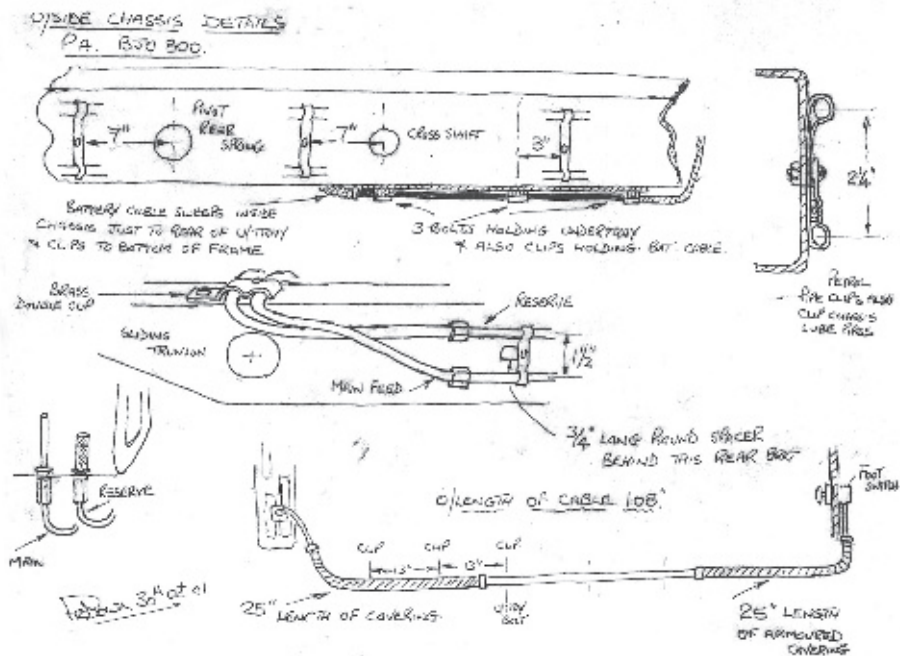 O/SIDE CHASSIS DETAILS
PA. BJO 300.
7"
PIVOT
REAR
SPRING
7"
CROSS SHAFT
3"
2¼"
BATTERY CABLE SWEEPS INSIDE
CHASSIS JUST TO REAR OF U/TRAY
& CLIPS TO BOTTOM OF FRAME
3 BOLTS HOLDING UNDERTRAY
& ALSO CLIPS HOLDING BAT. CABLE.
PETROL
PIPE CLIPS ALSO
CLIP CHASSIS
LUBE PIPES
BRASS
DOUBLE CLIP
RESERVE
SLIDING
TRUNION
1½"
MAIN FEED
¾" LONG ROUND SPACER
BEHIND THIS REAR BOLT
RESERVE
MAIN
O/LENGTH OF CABLE 108"
FOOT
SWITCH
CLIP
CLIP
CLIP
13"
13"
25"
LENGTH OF COVERING
U/TRAY
BOLT
25" LENGTH
OF ARMOURED
COVERING
30th Oct 01